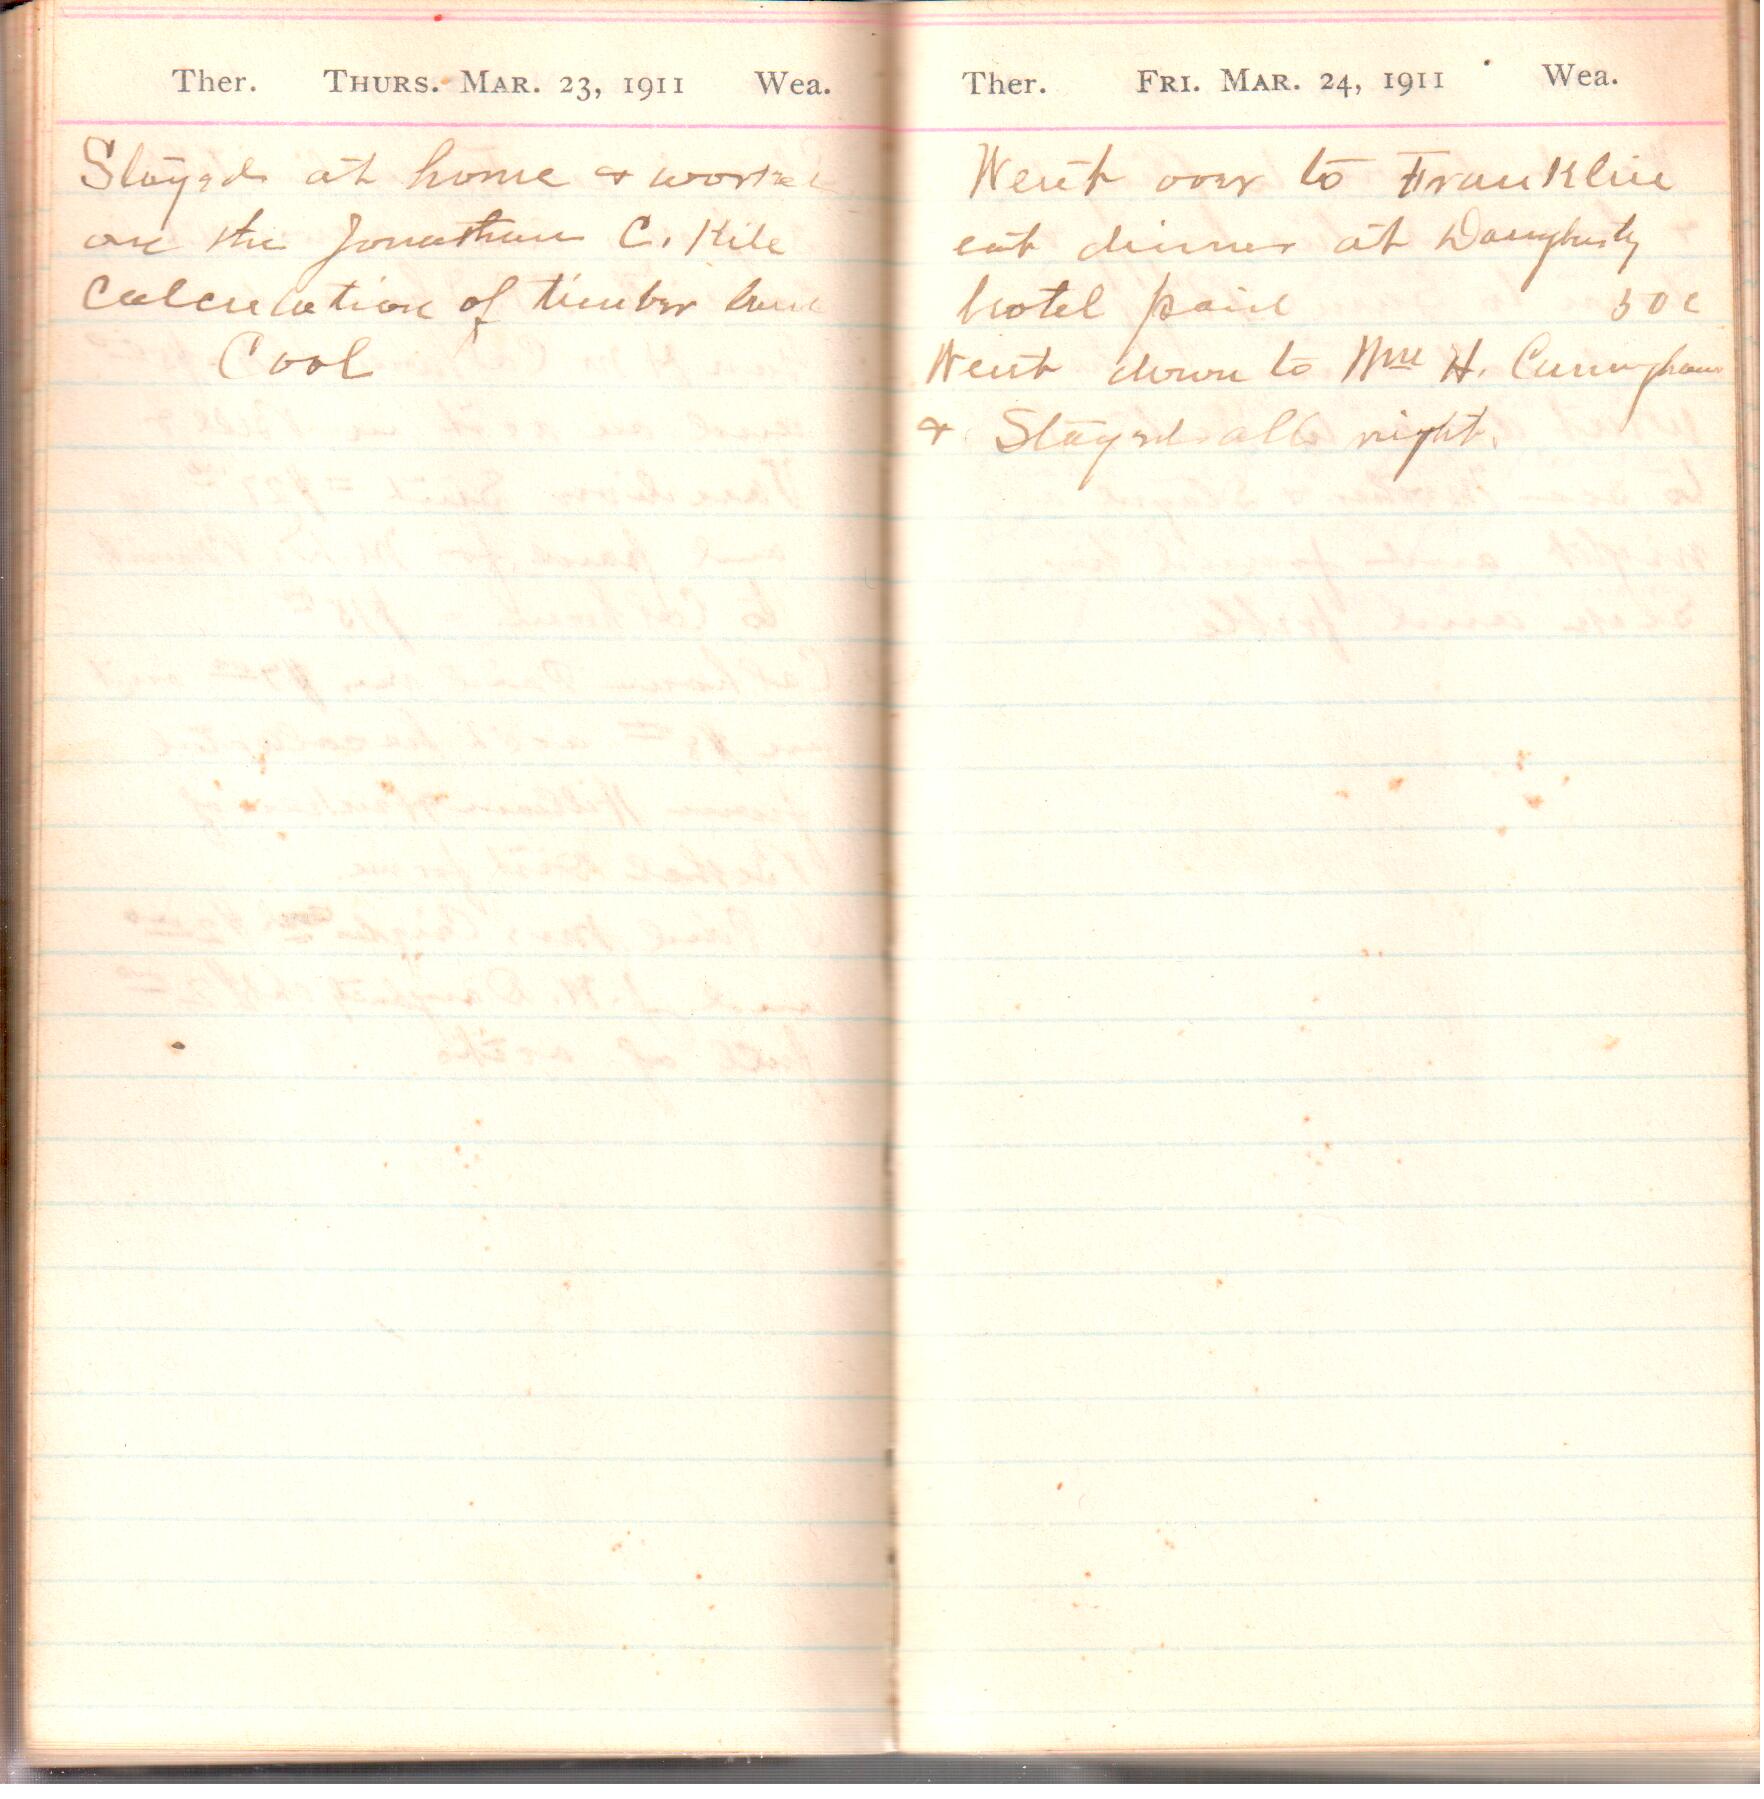 Ther. THURS. MAR. 23, 1911 Wea.
Stayed at home & worked
on the Jonathan C. Kile
Calculation of timber land
Cool
Ther. FRI. MAR. 24, 1911 Wea.
Went over to Franklin
eat dinner at Daugherty
hotel paid 50c
Went down to Wm H. Cunningham
& Stayed all night.